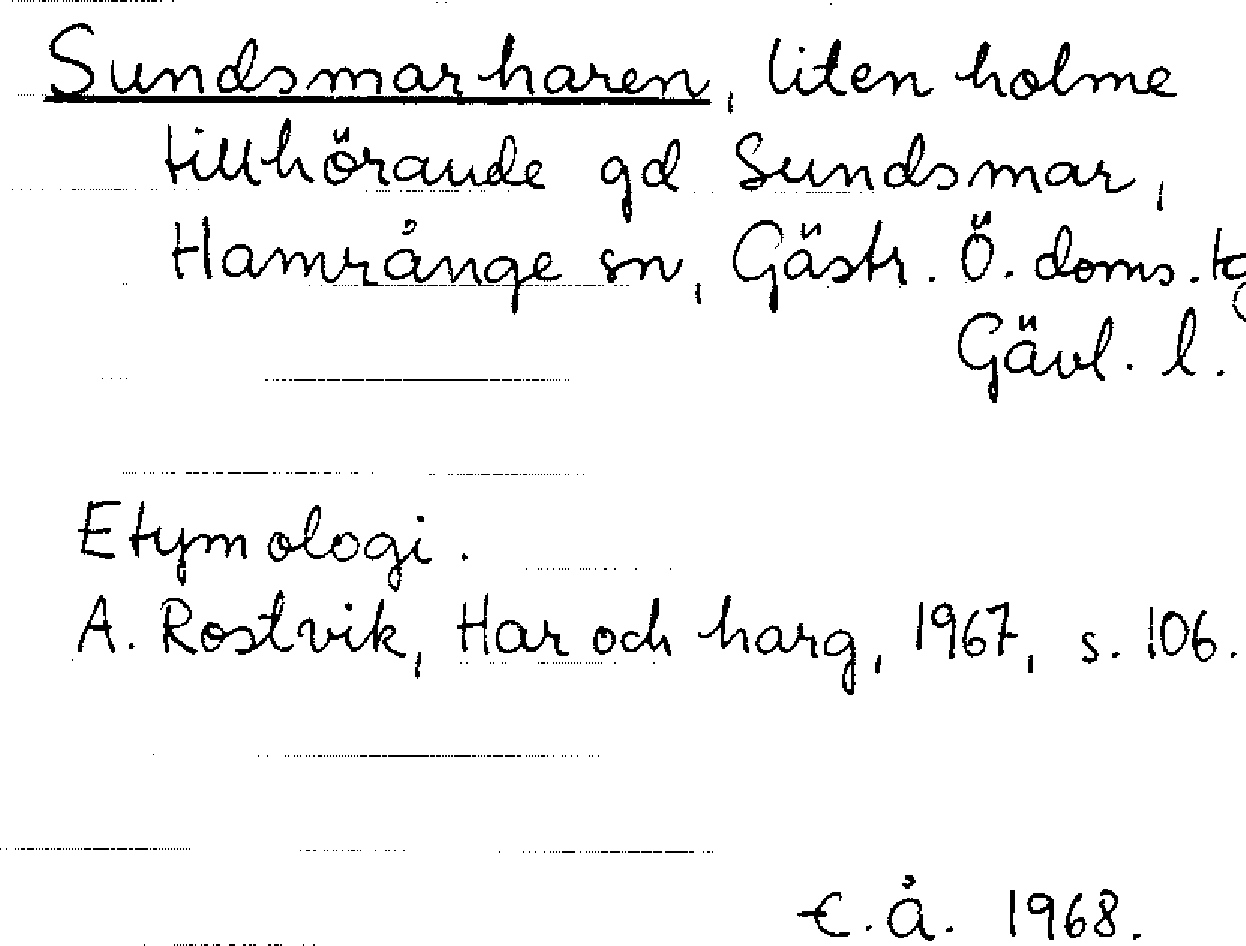 Sundsmarharen, liten holme
tillhörande gd Sundsmar,
Hamrånge sn, Gästr. Ö. doms. tg
Gävl. l.
Etymologi.
A. Rostvik, Har och harg, 1967, s. 106.
E. Å. 1968.